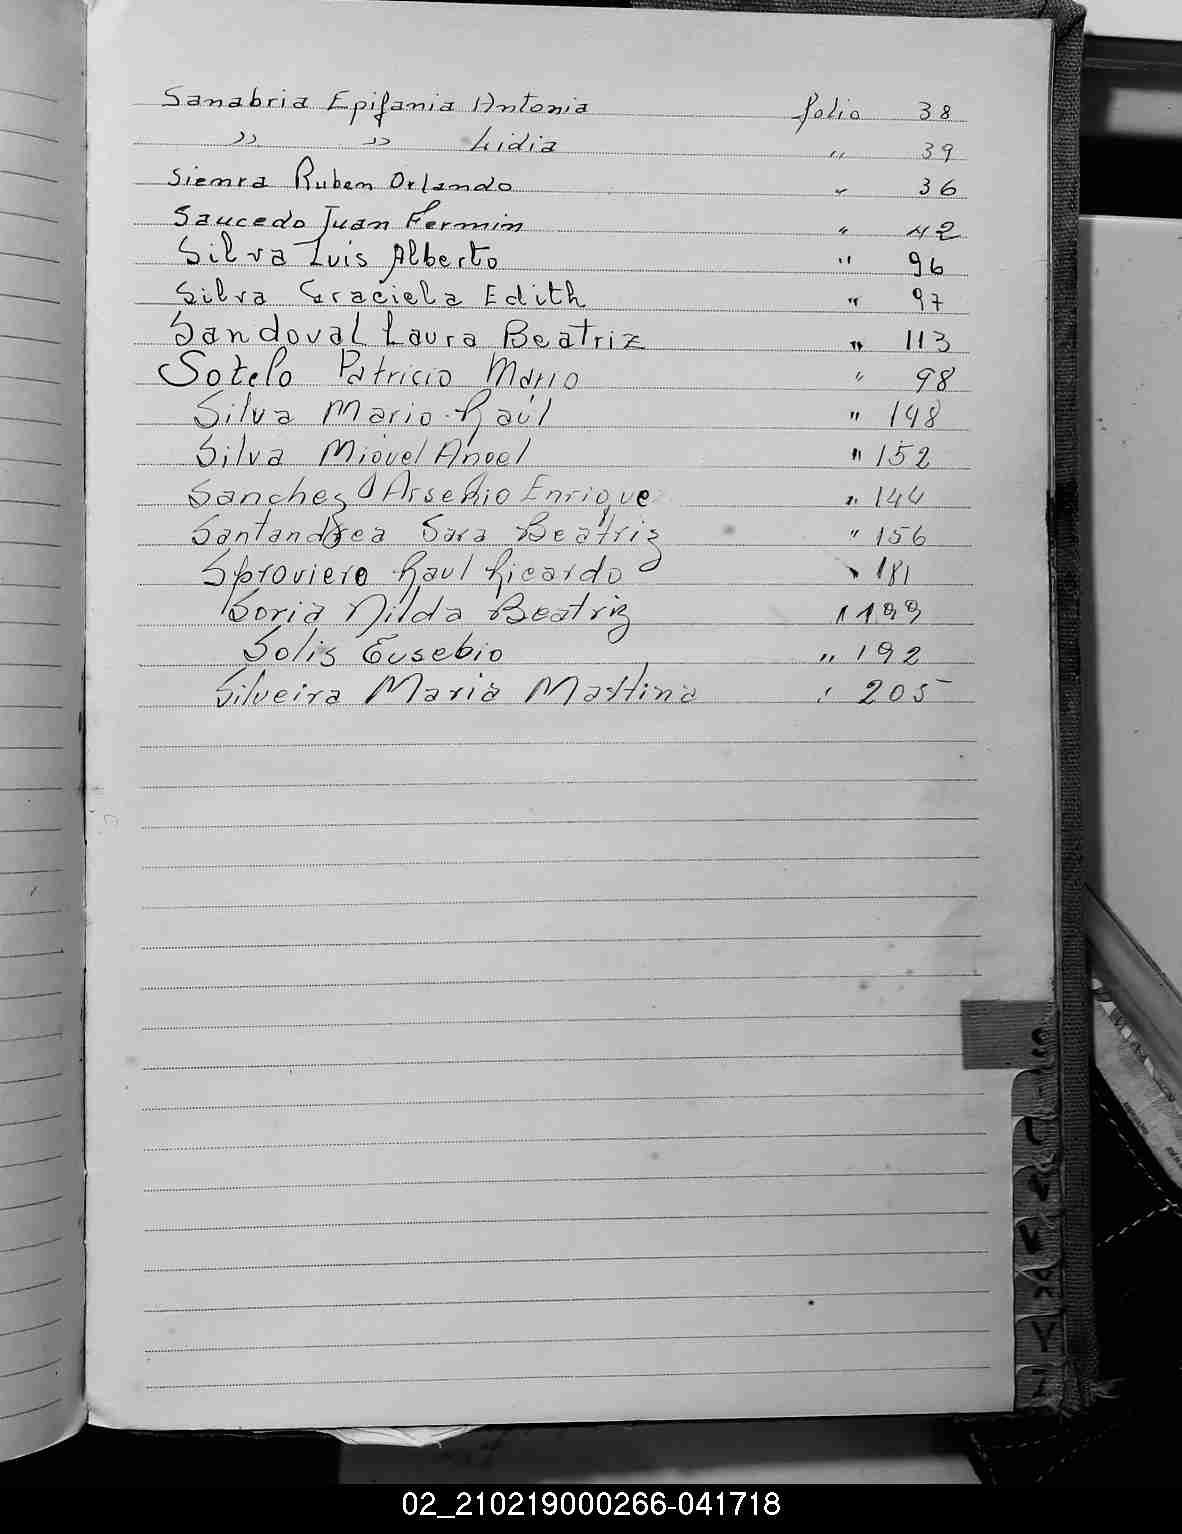 Sanabria Epifania Antonia folio 38
" " Lidia " 39
Siemra Ruben Orlando " 36
Saucedo Juan Fermin " 42
Silva Luis Alberto " 96
Silva Graciela Edith " 97
Sandoval Laura Beatriz " 113
Sotelo Patricio Mario " 98
Silva Mario Raúl " 148
Silva Miguel Angel " 152
Sanchez Arsenio Enrique " 144
Santandrea Sara Beatriz " 156
Sproviero Raul Ricardo " 181
Soria Nilda Beatriz " 199
Solis Eusebio " 192
Silveira Maria Martina " 205
02_210219000266-041718